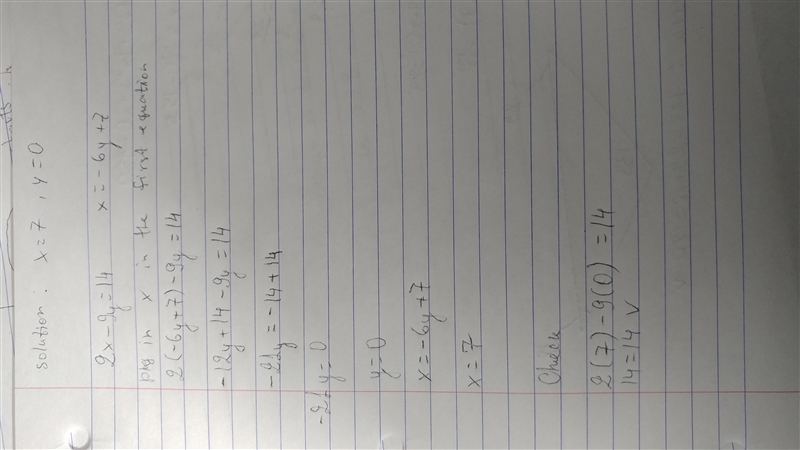 solution : x=7 , y=0
2x-9y=14 x=-6y+7
plug in x in the first equation
2(-6y+7)-9y=14
-12y+14-9y=14
-21y=-14+14
-21y=0
y=0
x=-6y+7
x=7
Check
2(7)-9(0)=14
14=14 √